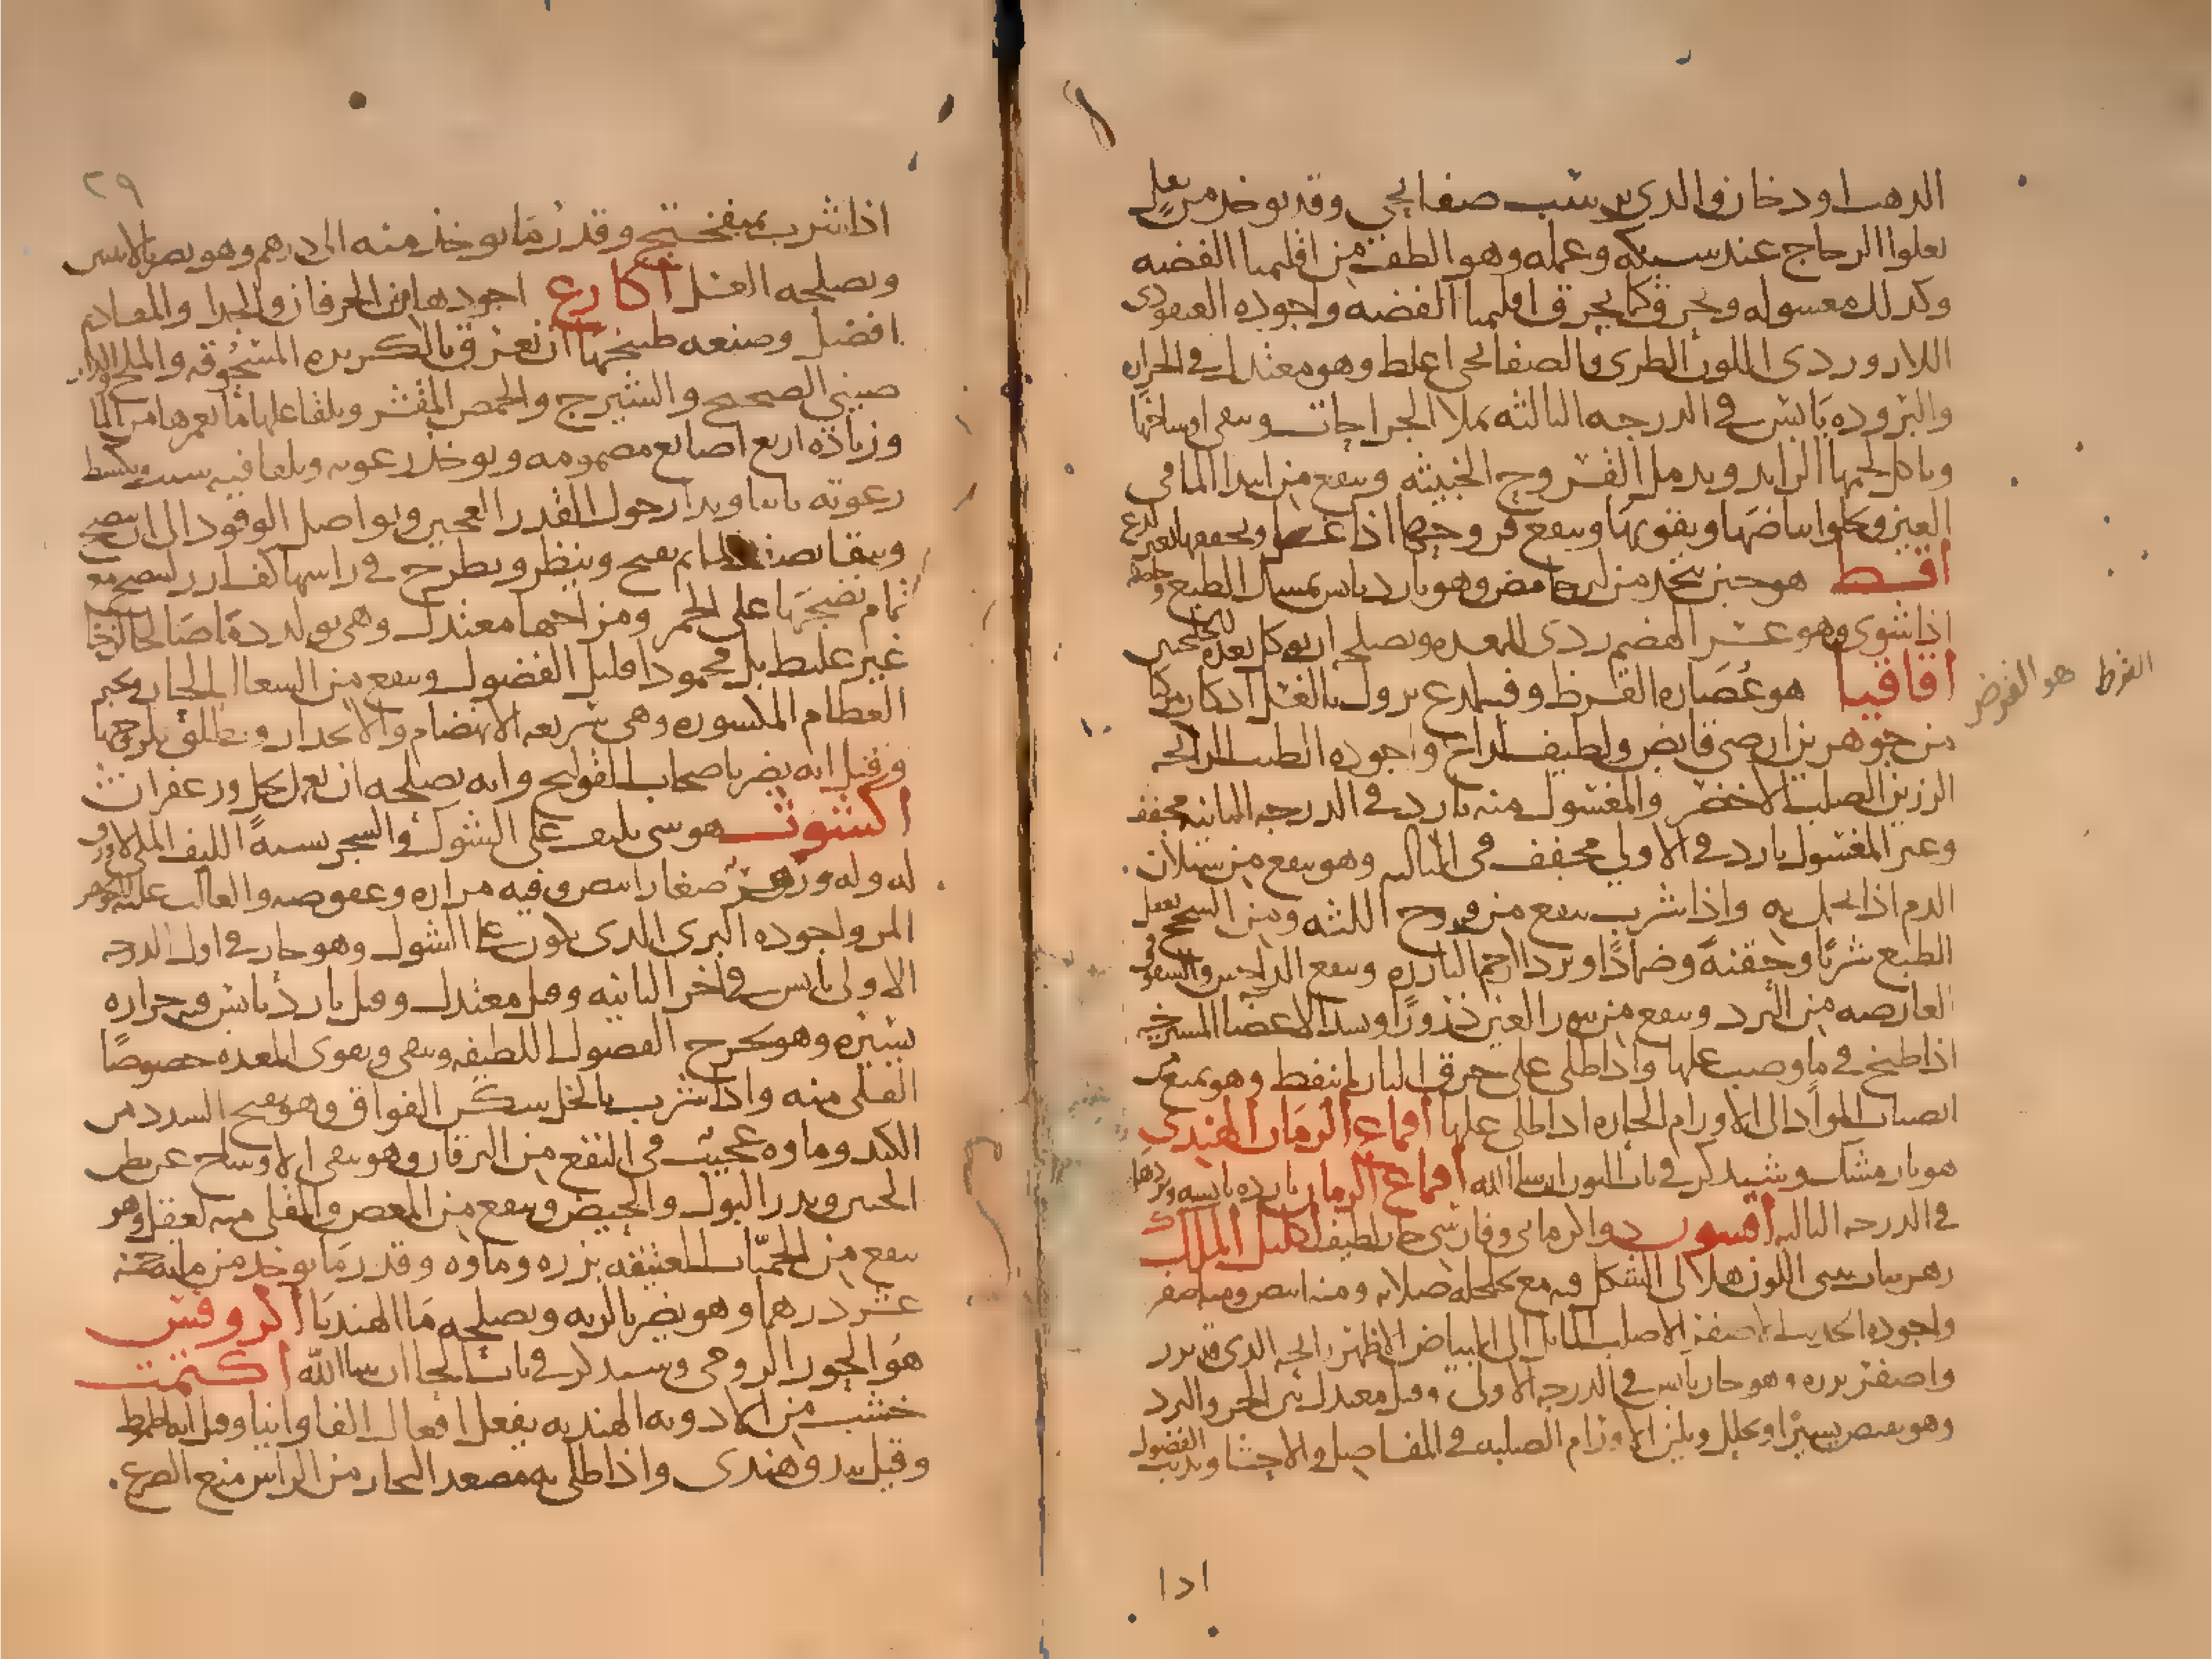 الدهب او دخان والدى يرسب صفايحى وقد يوخد من
تعلوا الزجاج عند سبكه وعمله وهو الطف من اقليميا الفضه
وكدلك مغسوله ويحرق كما يحرق اقليميا الفضه واجوده العنقودى
اللازوردى اللون الطرى والصفايحى اغلظ وهو معتدل فى الحراره
والبروده يابس فى الدرجه الثالثه يملا الجراحات وينقى اوساخها
وياكل لحمها الزايد ويدمل القروح الخبيثه وينفع من ابتدا الما فى
العين ويجلوا بياضها ويقويها وينفع قروحها اذا غسل ويجففها بغير لدع
اقط هو جبن يتخد من لبن حامض وهو بارد يابس يمسك الطبع وخاصة
اذا شوى وهو عسر الهضم ردى للمعده ويصلحه ان يوكل بعده
اقاقيا هو عُصَاره القرظ وفيه لدع يزول بالغسل اذ كان مركبا
القرظ هو القرض
من جوهرين ارضى قابض ولطيف لداع واجوده الطيب الرائحه
الرزين الصلب الاخضر والمغسول منه بارد فى الدرجه الثانيه مجفف
وغير المغسول بارد فى الاولى مجفف فى الثالثه وهو ينفع من سيلان
الدم اذا تحمل به واذا شرب ينفع من قروح اللثه ومن السحج يعقل
الطبع شربًا وحقنة وضمادًا ويرد الرحم البارزه وينفع الداحس والشقوق
العارضه من البرد وينفع من بثور العين ذرورًا ويشد الاعضا المسترخيه
اذا طبخ فى ما وصب عليها واذا طلى على حرق النار لم يتنفط وهو يمنع
انصباب المواد الى الاورام الحاره اذا طلى عليها اقماع الرمان الهندى
هو نارمشك وسيدكر فى باب النون ان شا الله اقماع الرمان بارده يابسه وبردها
فى الدرجه الثالثه اقسون دوا كرمانى وفارسى حار لطيف اكليل الملك
زهر نبات تبنى اللون هلالى الشكل فيه مع تخلخله صلابه ومنه ابيض ومنه اصفر
واجوده الحديث الاصفر الاصلب المايل الى البياض الاظهر رايحة الدى فيه بزر
واصفر بزره وهو حار يابس فى الدرجه الاولى وقيل معتدل بين الحر والبرد
وهو يقبض يسيرًا ويحلل ويلين الاورام الصلبه فى المفاصل والاحشا ويذيب الفضول
اذا
٢٩
اذا شرب بميفختج وقدر ما يوخذ منه الى درهم وهو يضر بالانثيين
ويصلحه العسل اكارع اجودها من الخرفان والجدا والمقاديم
افضل وصنعه طبخها ان تعرق بالكزبره المسحوقه والملح والدار
صينى الصحيح والشيرج والحمص المقشر ويلقا عليها ما يغمرها من الما
وزياده اربع اصابع مضمومه ويوخذ رغوته ويلقا فيه شبت ويكشط
رغوته ثانيا ويدار حول القدر العجين ويواصل الوقود الى ان ينضج
ويبقا نصف الما ثم يفتح وينظر ويطرح فى راسها كف ارز لينضج مع
تمام نضجها على الجمر ومزاجها معتدل وهى تولد دمًا صالحا لزجا
غير غليظ بل محمودا قليل الفضول وينفع من السعال الحار ويجبر
العظام المكسوره وهى سريعه الانهضام والانحدار ويطلق بلزوجتها
وقيل انه يضر باصحاب القولنج وانه يصلحه ان يعمل بخل وزعفران
اكشوث هو شى يلتف على الشوك والشجر يشبه الليف المكى لا ورق
له وله زهر صغار ابيض وفيه مراره وعفوصه والغالب عليه الجوهر
المر واجوده البرى الدى يكون على الشوك وهو حار فى اول الدرجه
الاولى يابس فى اخر الثانيه وقيل معتدل وقيل بارد يابس فيه حراره
يسيره وهو يخرج الفضول اللطيفه وينقى ويقوى المعده خصوصًا
المقلى منه واذا شرب بالخل سكن الفواق وهو يفتح السدد من
الكبد وماوه عجيب فى النفع من اليرقان وهو ينقى الاوساخ عن بطن
الجنين ويدر البول والحيض وينفع من المغص والمقلى منه يعقل وهو
ينفع من الحميّات العتيقه بزره وماوه وقدر ما يوخد من مايه خمسة
عشر درهما وهو يضر بالريه ويصلحه مَا الهندبا اكروفس
هُو الجوز الرومى وسيدكر فى باب الحا ان شا الله اكتمكت
خشب من الادويه الهنديه يفعل افعال الفاوانيا وقيل انه
وقيل بندق هندى واذا طلى به مصعد البخار من الراس منع الصرع